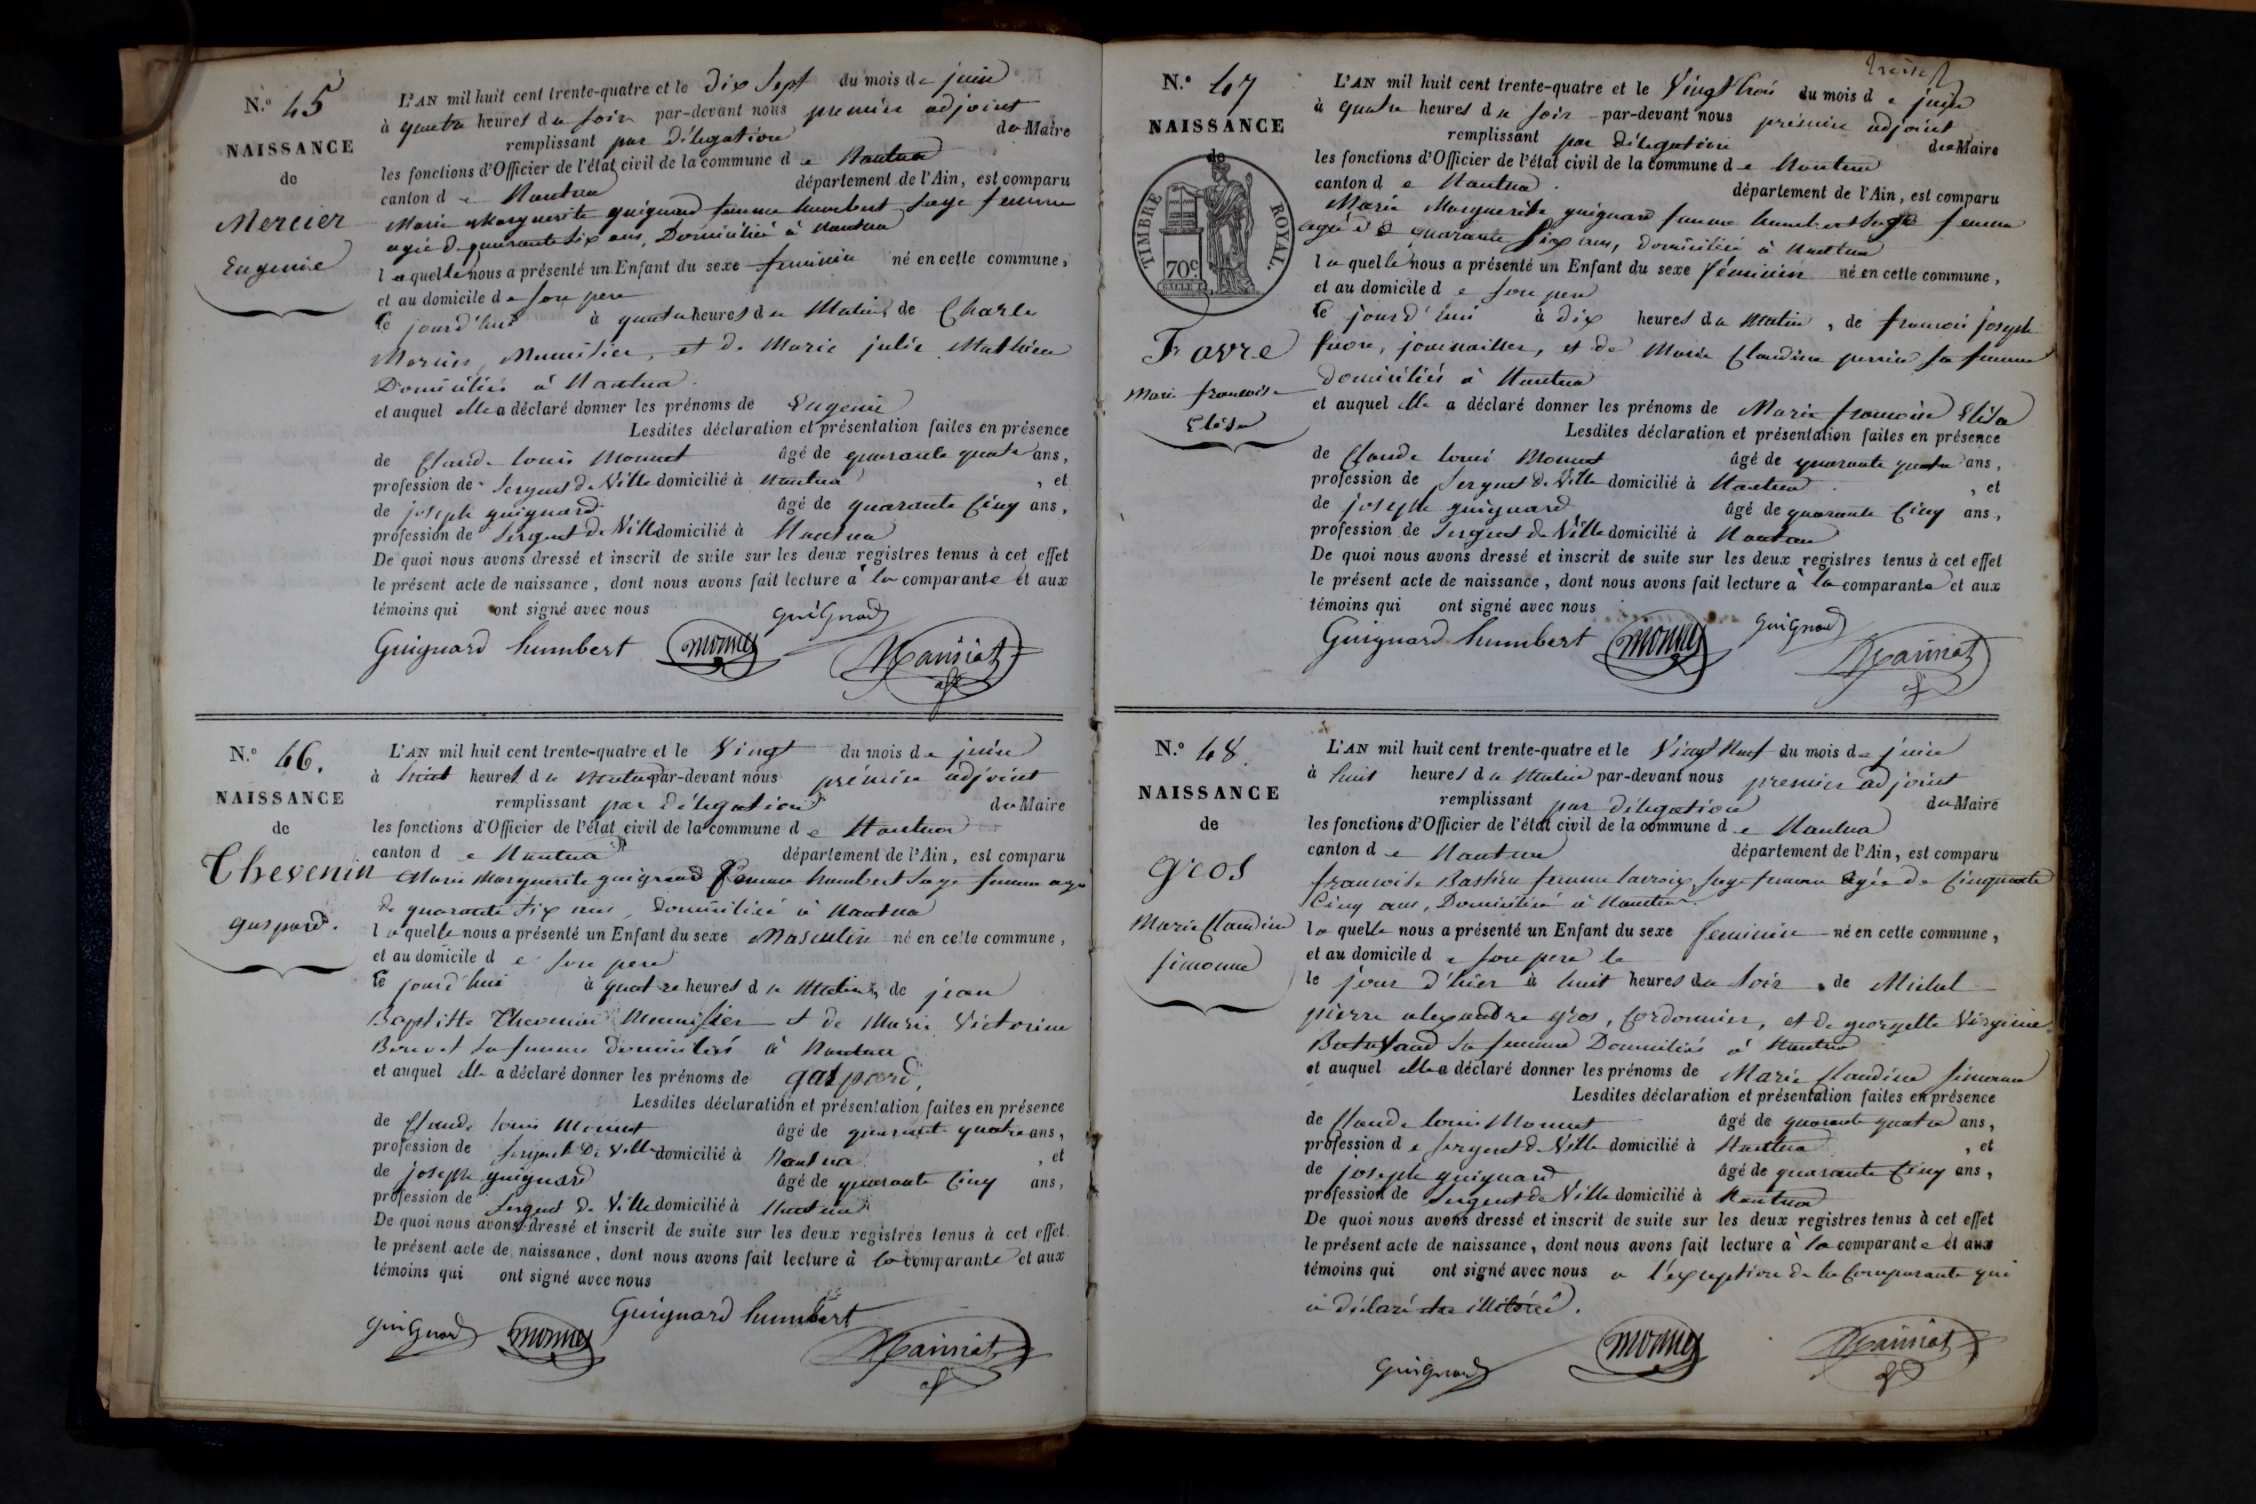 N.º 45
NAISSANCE
de
Mercier
Eugenie
L'AN mil huit cent trente-quatre et le Dix Sept du mois de juin
à quatre heures du soir par-devant nous premier adjoint
remplissant par délégation du Maire
les fonctions d'Officier de l'état civil de la commune de Nantua
canton de Nantua département de l'Ain, est comparu
Marie Marguerite guignard femme humbert Sage femme
agée de quarante Six ans, Domiciliée à Nantua
laquelle nous a présenté un Enfant du sexe feminin né en cette commune,
et au domicile de son pere
Ce jourd'hui à quatre heures du Matin, de Charle
Mercier, Menuisier, et de Marie julie Mathieu
Domiciliés à Nantua.
et auquel elle a déclaré donner les prénoms de Eugenie
Lesdites déclaration et présentation faites en présence
de Claude louis Monnet âgé de quarante quatre ans,
profession de Sergent de Ville domicilié à Nantua, et
de joseph guignard âgé de quarante Cinq ans,
profession de Sergent de Ville domicilié à Nantua
De quoi nous avons dressé et inscrit de suite sur les deux registres tenus à cet effet
le présent acte de naissance, dont nous avons fait lecture à la comparante et aux
témoins qui ont signé avec nous
Guignard humbert monnet guignard
N.º 46.
NAISSANCE
de
Thevenin
gaspard.
L'AN mil huit cent trente-quatre et le Vingt du mois de juin
à huit heures du Matin par-devant nous prémier adjoint
remplissant par délégation du Maire
les fonctions d'Officier de l'état civil de la commune de Nantua
canton de Nantua département de l'Ain, est comparu
Marie Marguerite guignard femme humbert Sage femme age
de quarante Six ans, Domiciliée à Nantua
laquelle nous a présenté un Enfant du sexe Masculin né en cette commune,
et au domicile de son pere
Ce jourd'hui à quatre heures du Matin, de jean
Baptiste Thevenin Menuisier et de Marie Victorine
sa femme Domiciliés à Nantua
et auquel elle a déclaré donner les prénoms de gaspard,
Lesdites déclaration et présentation faites en présence
de Claude louis Monnet âgé de quarante quatre ans,
profession de Sergent De Ville domicilié à Nantua, et
de joseph guignard âgé de quarante Cinq ans,
profession de Sergent de Ville domicilié à Nantua
De quoi nous avons dressé et inscrit de suite sur les deux registres tenus à cet effet
le présent acte de naissance, dont nous avons fait lecture à la comparante et aux
témoins qui ont signé avec nous
Guignard humbert
guignard monnet
N.º 47
NAISSANCE
de
TIMBRE ROYAL.
70c
Favre
Marie françoise
Elisa
L'AN mil huit cent trente-quatre et le Vingt trois du mois de juin
à quatre heures du soir par-devant nous prémier adjoint
remplissant par délégation du Maire
les fonctions d'Officier de l'état civil de la commune de Nantua
canton de Nantua. département de l'Ain, est comparu
Marie Marguerite guignard femme humbert Sage femme
agée de quarante Six ans, domiciliée à Nantua
laquelle nous a présenté un Enfant du sexe féminin né en cette commune,
et au domicile de son pere
Ce jourd'hui à dix heures du matin, de françois joseph
favre, journailler, et de Marie Claudine perrin sa femme
domiciliés à Nantua
et auquel elle a déclaré donner les prénoms de Marie françoise Elisa
Lesdites déclaration et présentation faites en présence
de Claude louis Monnet âgé de quarante quatre ans,
profession de Sergent de Ville domicilié à Nantua, et
de joseph guignard âgé de quarante Cinq ans,
profession de Sergent de Ville domicilié à Nantua
De quoi nous avons dressé et inscrit de suite sur les deux registres tenus à cet effet
le présent acte de naissance, dont nous avons fait lecture à la comparante et aux
témoins qui ont signé avec nous
Guignard humbert monnet guignard
N.º 48.
NAISSANCE
de
gros
Marie Claudine
Simonne
L'AN mil huit cent trente-quatre et le Vingt Neuf du mois de juin
à huit heures du Matin par-devant nous premier adjoint
remplissant par délégation du Maire
les fonctions d'Officier de l'état civil de la commune de Nantua
canton de Nantua département de l'Ain, est comparu
françoise Bastien femme lacroix Sage femme agée de Cinquante
Cinq ans, Domiciliée à Nantua.
laquelle nous a présenté un Enfant du sexe feminin né en cette commune,
et au domicile de son pere le
le jour d'hier à huit heures du soir, de Michel
pierre alexandre gros, Cordonnier, et de georgette Virginie
sa femme Domiciliés à Nantua
et auquel elle a déclaré donner les prénoms de Marie Claudine Simonne
Lesdites déclaration et présentation faites en présence
de Claude louis Monnet âgé de quarante quatre ans,
profession de Sergent de Ville domicilié à Nantua, et
de joseph guignard âgé de quarante Cinq ans,
profession de Sergent de Ville domicilié à Nantua
De quoi nous avons dressé et inscrit de suite sur les deux registres tenus à cet effet
le présent acte de naissance, dont nous avons fait lecture à la comparante et aux
témoins qui ont signé avec nous a l'exception de la Comparante qui
a déclaré être illitérée.
guignard monnet